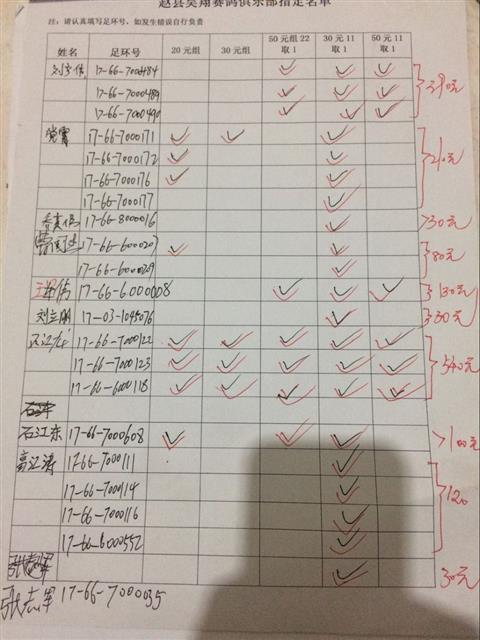 赵县昊翔赛鸽俱乐部指定名单
注：请认真填写足环号，如发生错误自行负责
姓名 足环号 20元组 30元组 50元组22取1 30元11取1 50元11取1
17-66-7000484 ✓ ✓ ✓
17-66-7000489 ✓ ✓ ✓
17-66-7000490 ✓ ✓ ✓ 390元
17-66-7000171 ✓ ✓ ✓
17-66-7000172 ✓ ✓
17-66-7000176 ✓ ✓ 210元
17-66-7000177 ✓
17-66-8000016 ✓ 30元
17-66-6000207 ✓ ✓ 80元
17-66-6000029 ✓
17-66-6000008 ✓ ✓ ✓ 130元
刘立朋 17-03-1045076 ✓ 30元
17-66-7000122 ✓ ✓ ✓ ✓ ✓
17-66-7000123 ✓ ✓ ✓ ✓ ✓ 540元
17-66-6000118 ✓ ✓ ✓ ✓ ✓
石江东 17-66-7000608 ✓ ✓ ✓ 100元
高江涛 17-66-7000111 ✓
17-66-7000114 ✓ 120
17-66-7000116 ✓
17-66-6000552 ✓
✓ 30元
张志军 17-66-7000035